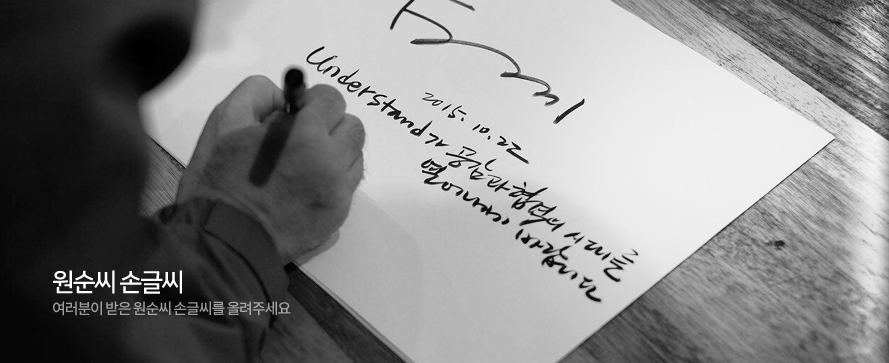 2015. 10. 22
Understand가 공감과 협력의 시대를
열어나가기 바랍니다
원순씨 손글씨
여러분이 받은 원순씨 손글씨를 올려주세요